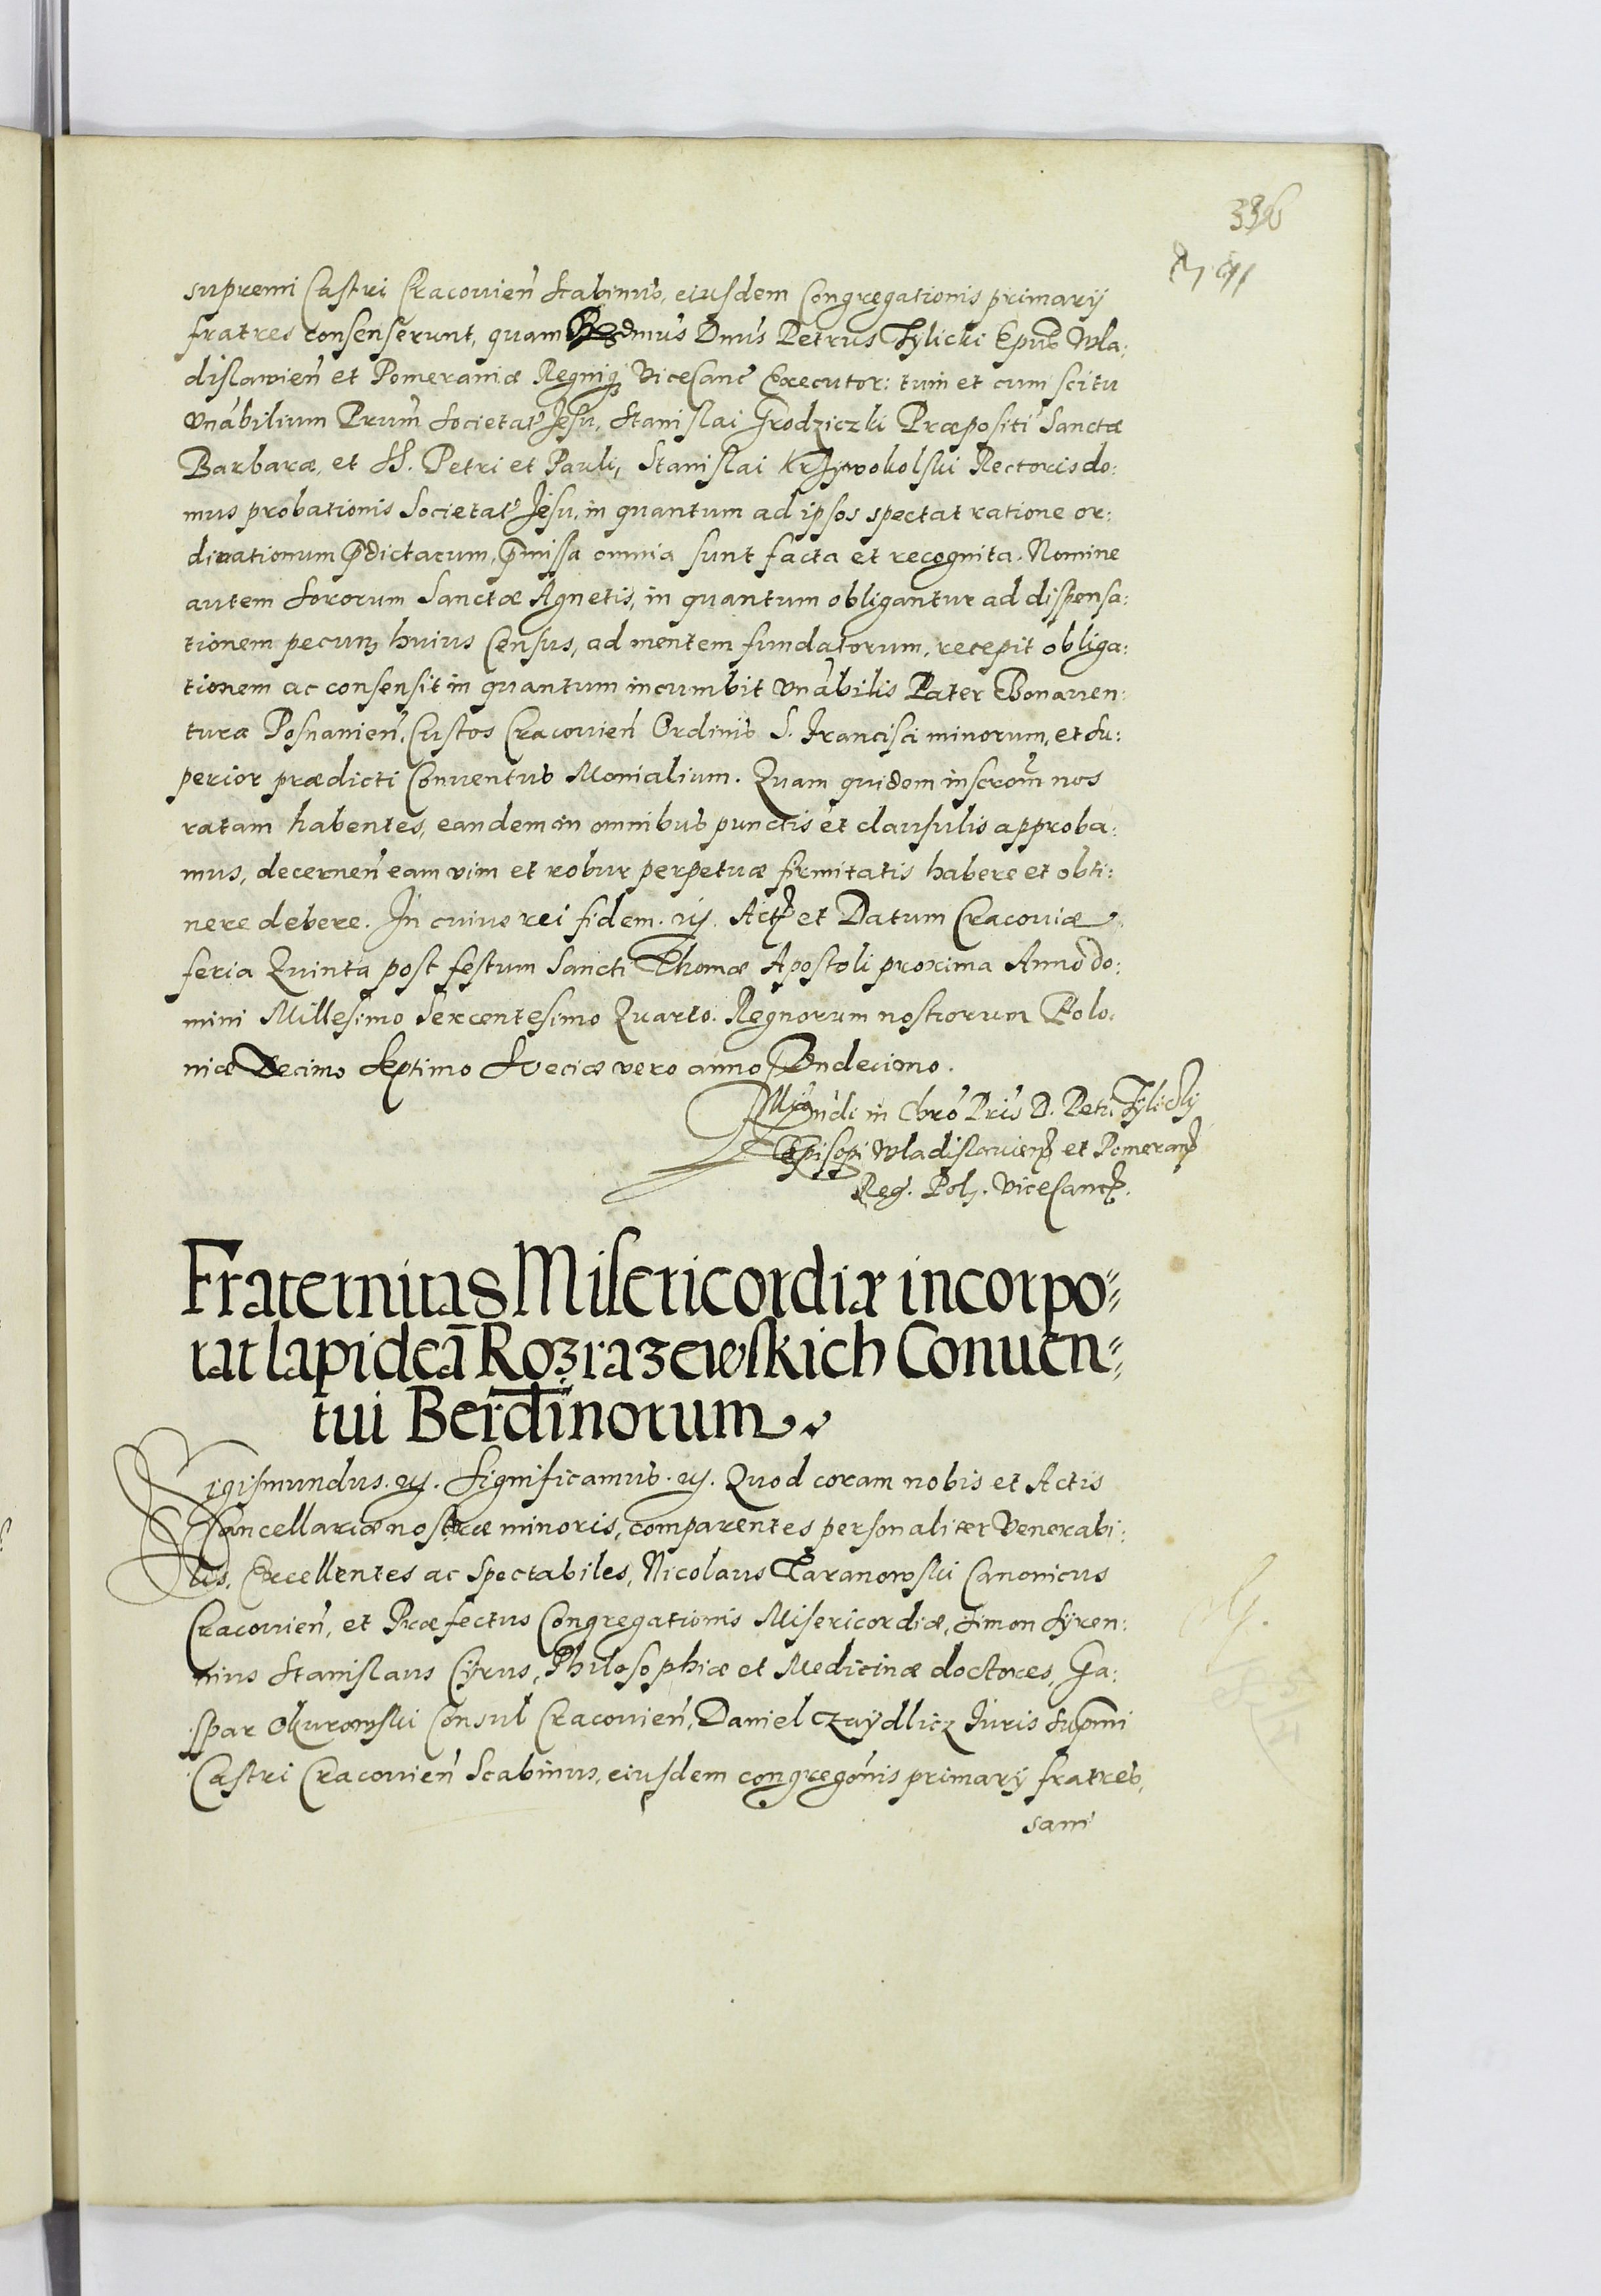 336
supremi Castri Cracouien̄ Scabinus, eiusdem Congregationis primarij
fratres consenserunt, quam Rndmus Dnus Petrus Tylicki Epus Wla:
dislauien̄ et Pomeraniæ Regniq; Vicecanc Executor: tum et cum scitu
Vnabilium Prum Societat Jesu, Stanislai Grodziczki Præpositi Sanctæ
Barbaræ, et SS. Petri et Pauli, Stanislai Krzywokolski Rectoris do:
mus probationis Societat Jesu, in quantum ad ipsos spectat ratione or:
dinationum p̄dictarum, p̄missa omnia sunt facta et recognita. Nomine
autem Sororum Sanctæ Agnetis, in quantum obligantur ad dispensa:
tionem pecun; huius Census, ad mentem fundatorum, recepit obliga:
tionem ac consensit in quantum incumbit Vnabilis Pater Bonauen:
tura Posnanien̄, Custos Cracouien̄ Ordinis S. Francisci minorum, et Su:
perior prædicti Conuentus Monialium. Quam quidem inscrom̄ nos
ratam habentes, eandem in omnibus punctis et clausulis approba:
mus, decernen̄ eam vim et robur perpetuæ firmitatis habere et obti:
nere debere. In cuius rei fidem. etc. Act et Datum Cracouiæ
feria Quinta post festum Sancti Thomæ Apostoli proxima Anno do:
mini Millesimo Sexcentesimo Quarto. Regnorum nostrorum Polo:
niæ Decimo Septimo Sueciæ vero anno Vndecimo.
in Chro Pris D. Petri Tylicky
Episcopi Wladislauien et Pomeran
Reg. Pol. Vicecanc.
Fraternitas Misericordiæ incorpo=
rat lapideā Rozrazewskich Conuen=
tui Berdinorum
Sigismundus. etc. Significamus. etc. Quod coram nobis et Actis
Cancellariæ nostræ minoris, comparentes personaliter Venerabi:
les, Excellentes ac Spectabiles, Nicolaus Taranowski Canonicus
Cracouien̄, et Præfectus Congregationis Misericordiæ, Simon Syren:
nius Stanislaus Cyrus, Philosophiæ et Medicinæ doctores, Ga:
spar Okurowski Consul Cracouien̄, Daniel Czaydlicz Iuris Sup̄mi
Castri Cracouien̄ Scabinus, eiusdem congregōnis primarij fratres,
sani